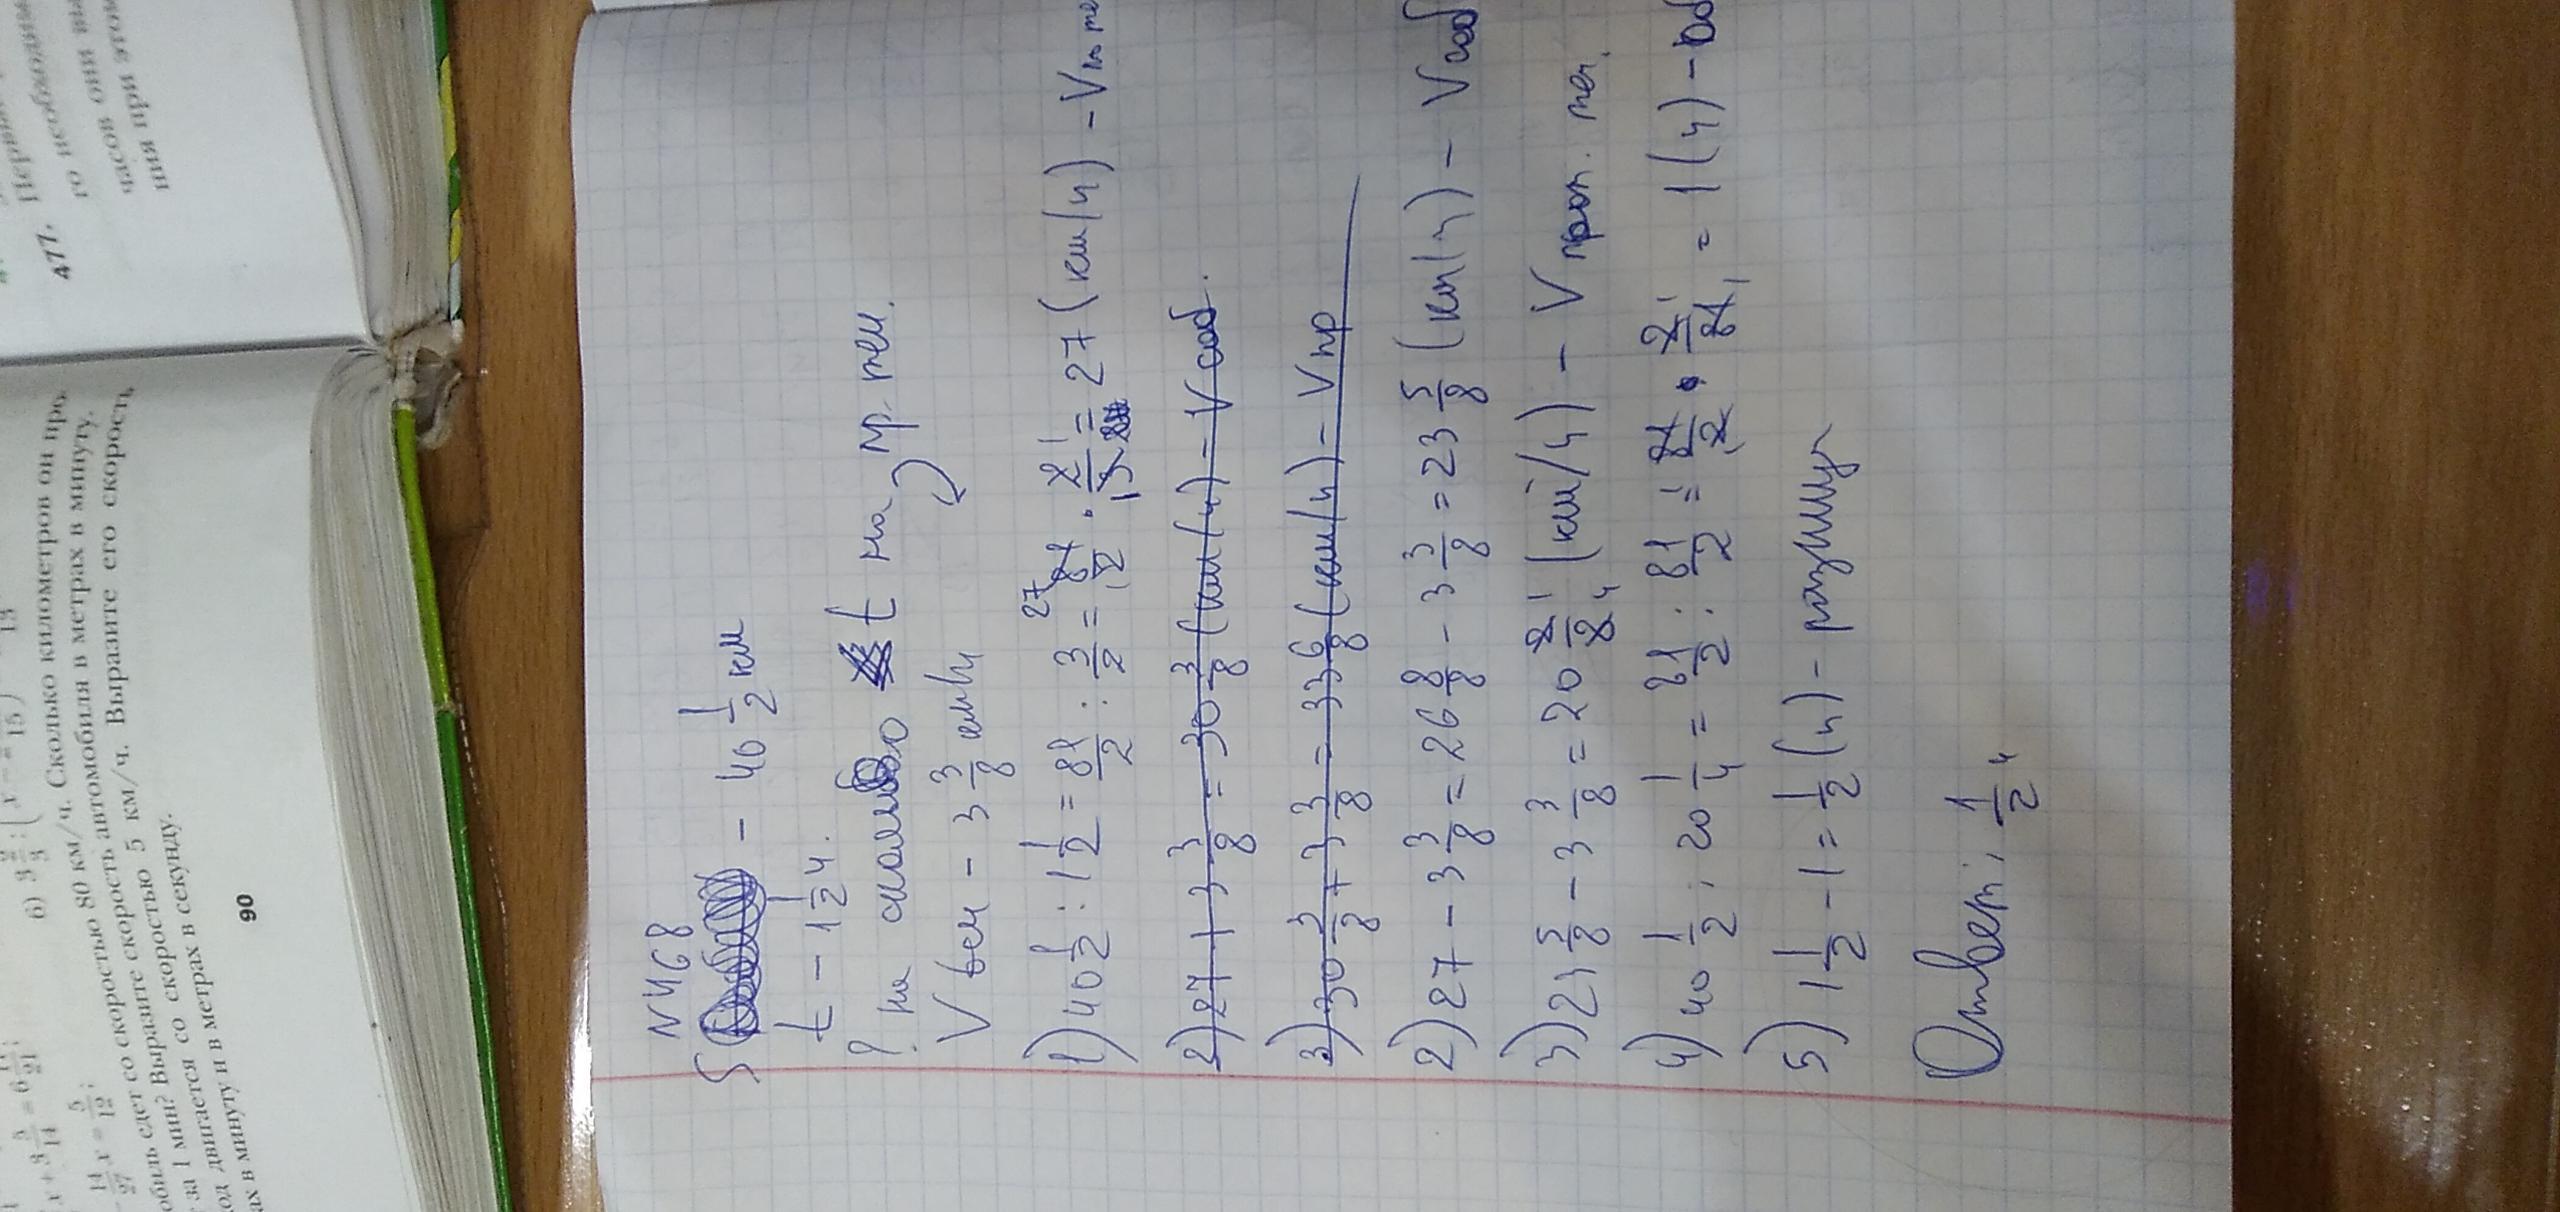 13
15
6) 3
обиль едет со скоростью 80 км/ч. Сколько километров он про
за 1 мин? Выразите скорость автомобиля в метрах в минуту.
од двигается со скоростью 5 км/ч. Выразите его скорость
ах в минуту и в метрах в секунду.
90
477.
го необходим
часов они
ния при этом
N468
S - 40 1/2 км
t - 1 1/2 ч.
? на сколько t на пр. теч.
V теч - 3 3/8 км/ч
1) 40 1/2 : 1 1/2 = 81/2 : 3/2 = 81/2 · 2/3 = 27 (км/ч) - V по те
2) 27 + 3 3/8 = 30 3/8 (км/ч) - V соб.
3) 30 3/8 + 3 3/8 = 33 6/8 (км/ч) - V пр
2) 27 - 3 3/8 = 26 8/8 - 3 3/8 = 23 5/8 (км/ч) - V соб
3) 23 5/8 - 3 3/8 = 20 2/8 (км/ч) - V прот. теч.
4) 40 1/2 : 20 1/4 = 81/2 : 81/2 = 81/2 · 2/81 = 1 (ч) -
5) 1 1/2 - 1 = 1/2 (ч) - разницу
Ответ: 1/2 ч